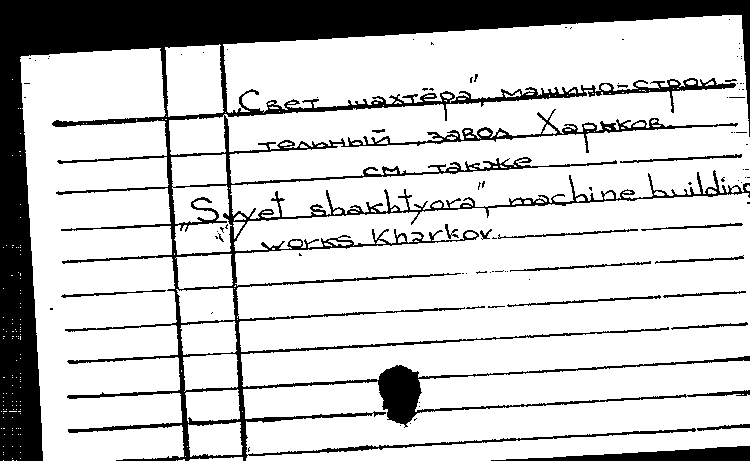 „Свет шахтёра", машино=строи=
тельный завод Харьков.
см. также
„Svyet shakhtyora", machine building
works. Kharkov.